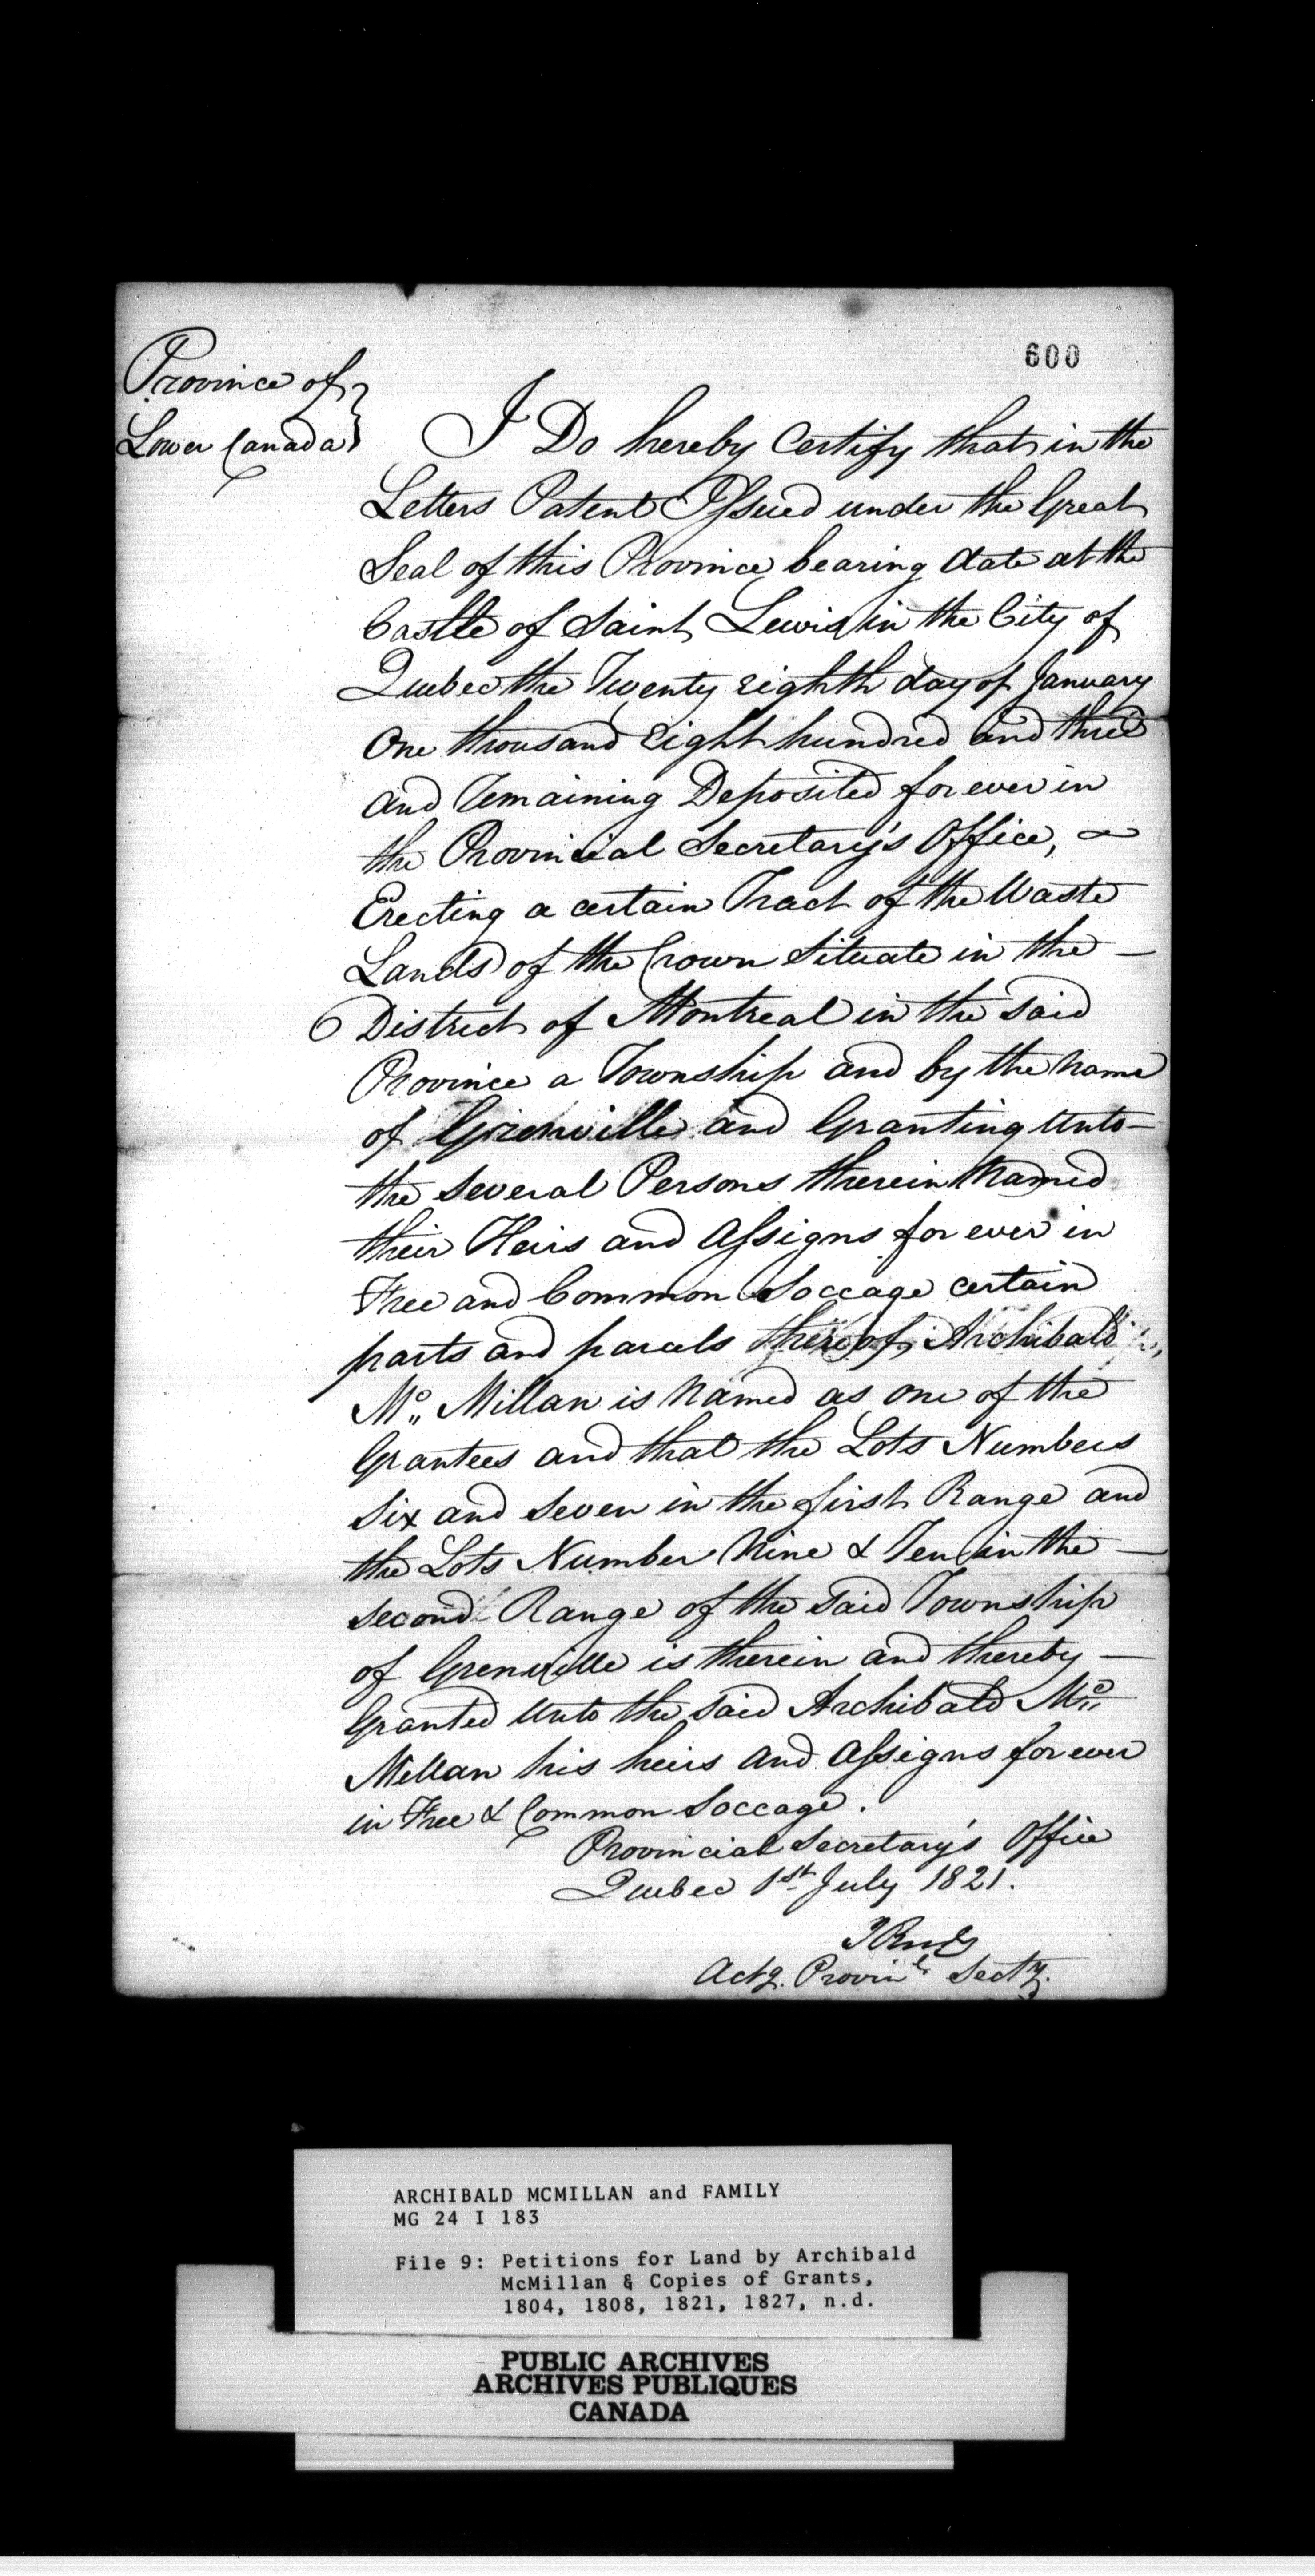 600
Province of
Lower Canada
I Do hereby Certify that in the
Letters Patent Issued under the Great
Seal of this Province bearing date at the
Castle of Saint Lewis in the City of
Quebec the Twenty eighth day of January
One thousand Eight hundred and three
and Remaining Deposited for ever in
the Provincial Secretary's Office,
Erecting a certain Tract of the Waste
Lands of the Crown Situate in the —
District of Montreal in the said
Province a Township and by the Name
of Grenville and Granting Unto —
the several Persons therein Named
their Heirs and Assigns for ever in
Free and Common Soccage certain
parts and parcels thereof, Archibald
Mc Millan is Named as one of the
Grantees and that the Lots Numbers
Six and Seven in the first Range and
the Lots Number Nine & Ten in the —
second Range of the said Township
of Grenville is therein and thereby —
Granted Unto the said Archibald Mc
Millan his heirs and Assigns for ever
in Free & Common Soccage.
Provincial Secretary's Office
Quebec 1st July 1821.
Actg. Provinl Secty.
ARCHIBALD MCMILLAN and FAMILY
MG 24 I 183
File 9: Petitions for Land by Archibald
McMillan & Copies of Grants,
1804, 1808, 1821, 1827, n.d.
PUBLIC ARCHIVES
ARCHIVES PUBLIQUES
CANADA